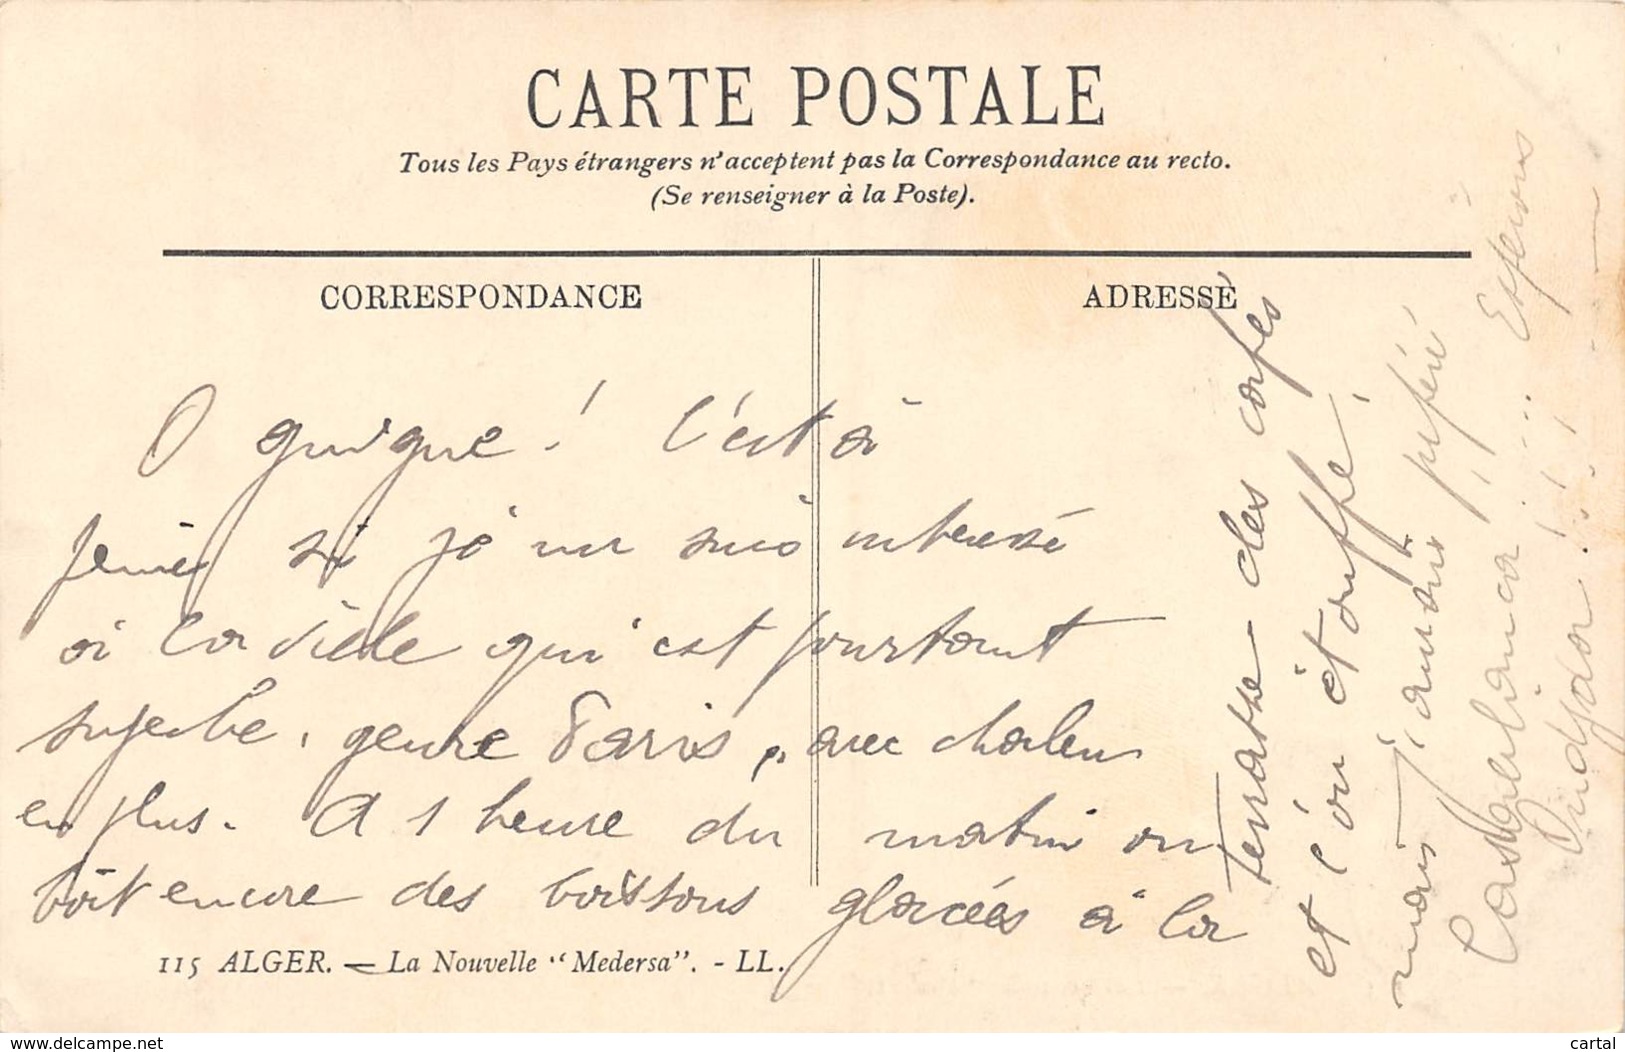 CARTE POSTALE
Tous les Pays étrangers n'acceptent pas la Correspondance au recto.
(Se renseigner à la Poste).
CORRESPONDANCE
ADRESSE
O guigue ! C'est à
peine si je me suis intéressé
à la ville qui est pourtant
superbe, genre Paris, avec chaleur
en plus. A 1 heure du matin on
boit encore des boissons glacées à la
terrasse des cafés
et l'on étouffe !
mais j'aurais préféré
Casablanca !... Espérons
Oudjda !!!
115 ALGER. — La Nouvelle "Medersa". - LL.
www.delcampe.net
cartal